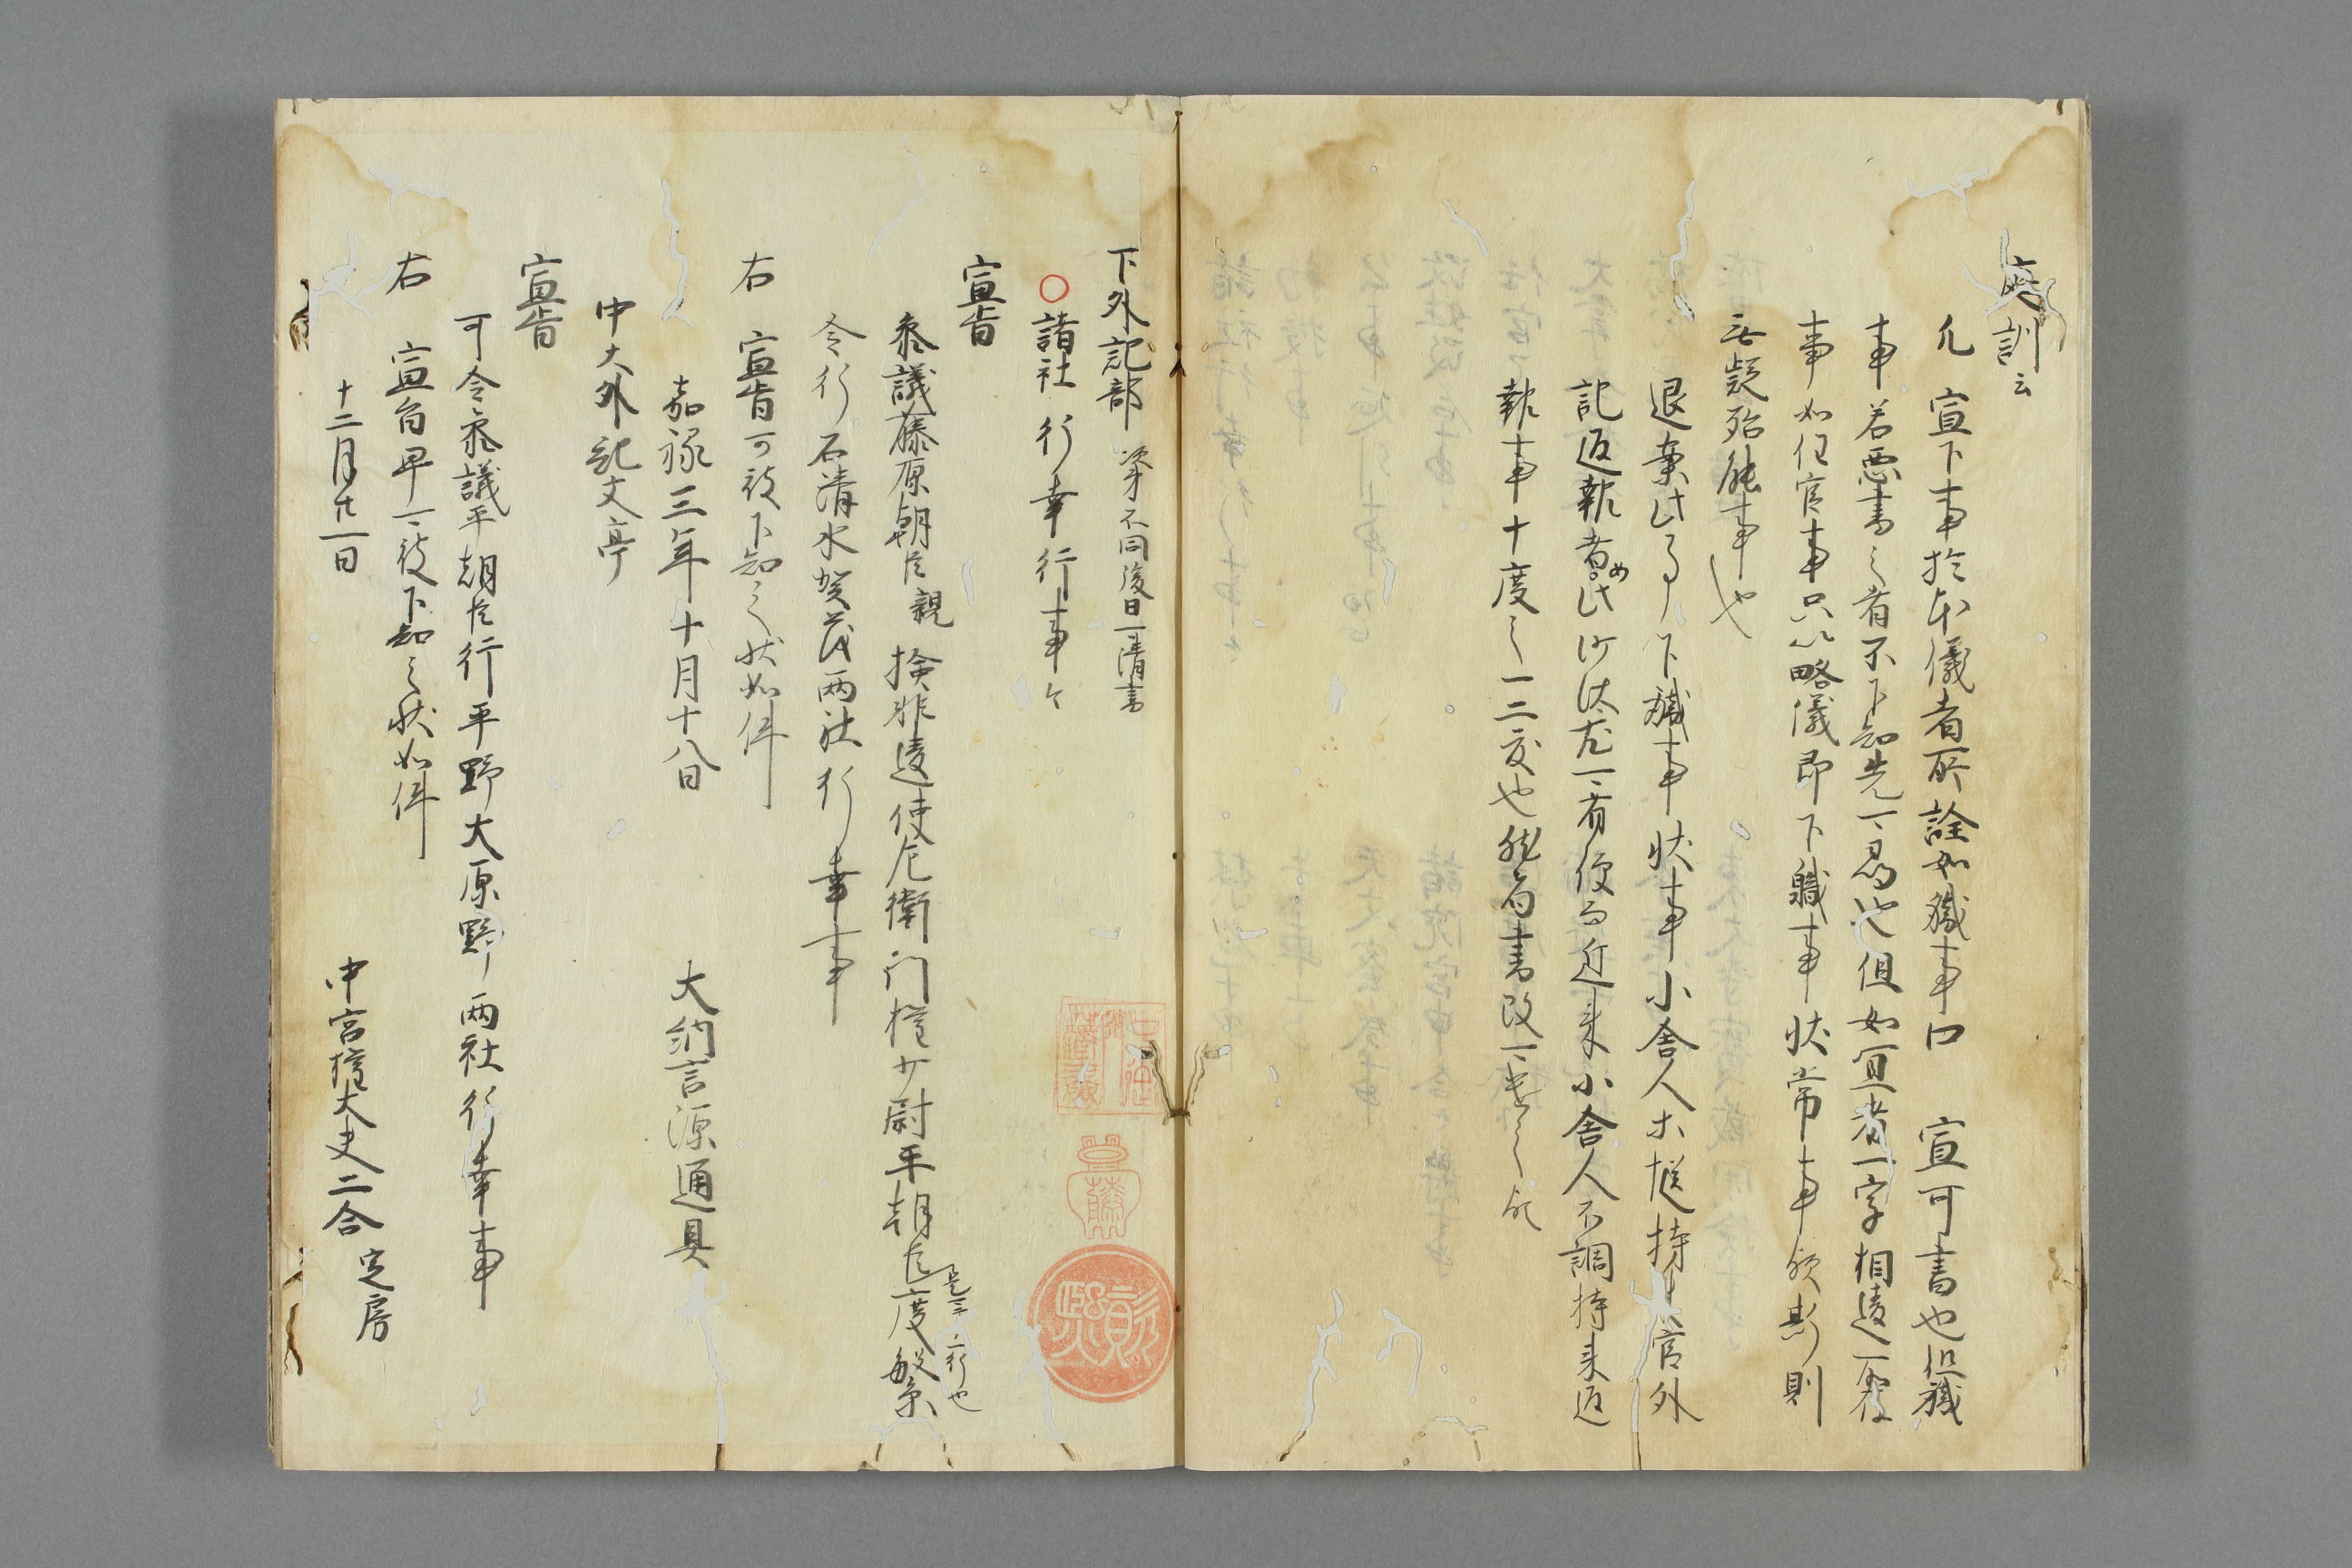 庭訓云
凡 宣下事於本儀者所詮如職事口 宣可書也但職
事若悪書之者不下知先可忍也但如宣者一字相違可聞
事如任官事只以略儀即下職事状常事歟斯則
無疑殆能事也
退棄此了下職事状事小舎人木 持 官外
記返報者此沙汰尤可有便而近来小舎人不調持来返
報事十度之一二度也然而書改可 之歟
下外記部 次第不同後日可清書
○諸社行幸行事々
宣旨
参議藤原朝臣親 検非違使左衛門権少尉平朝臣度繁 二行也
令行石清水賀茂両社行幸事
右 宣旨可被下知之状如件
嘉禄三年十月十八日 大納言源通具
中大外記文亭
宣旨
可令参議平朝臣行平野大原野両社行幸事
右 宣旨早可被下知之状如件
十二月廿一日 中宮権大夫二合 定房